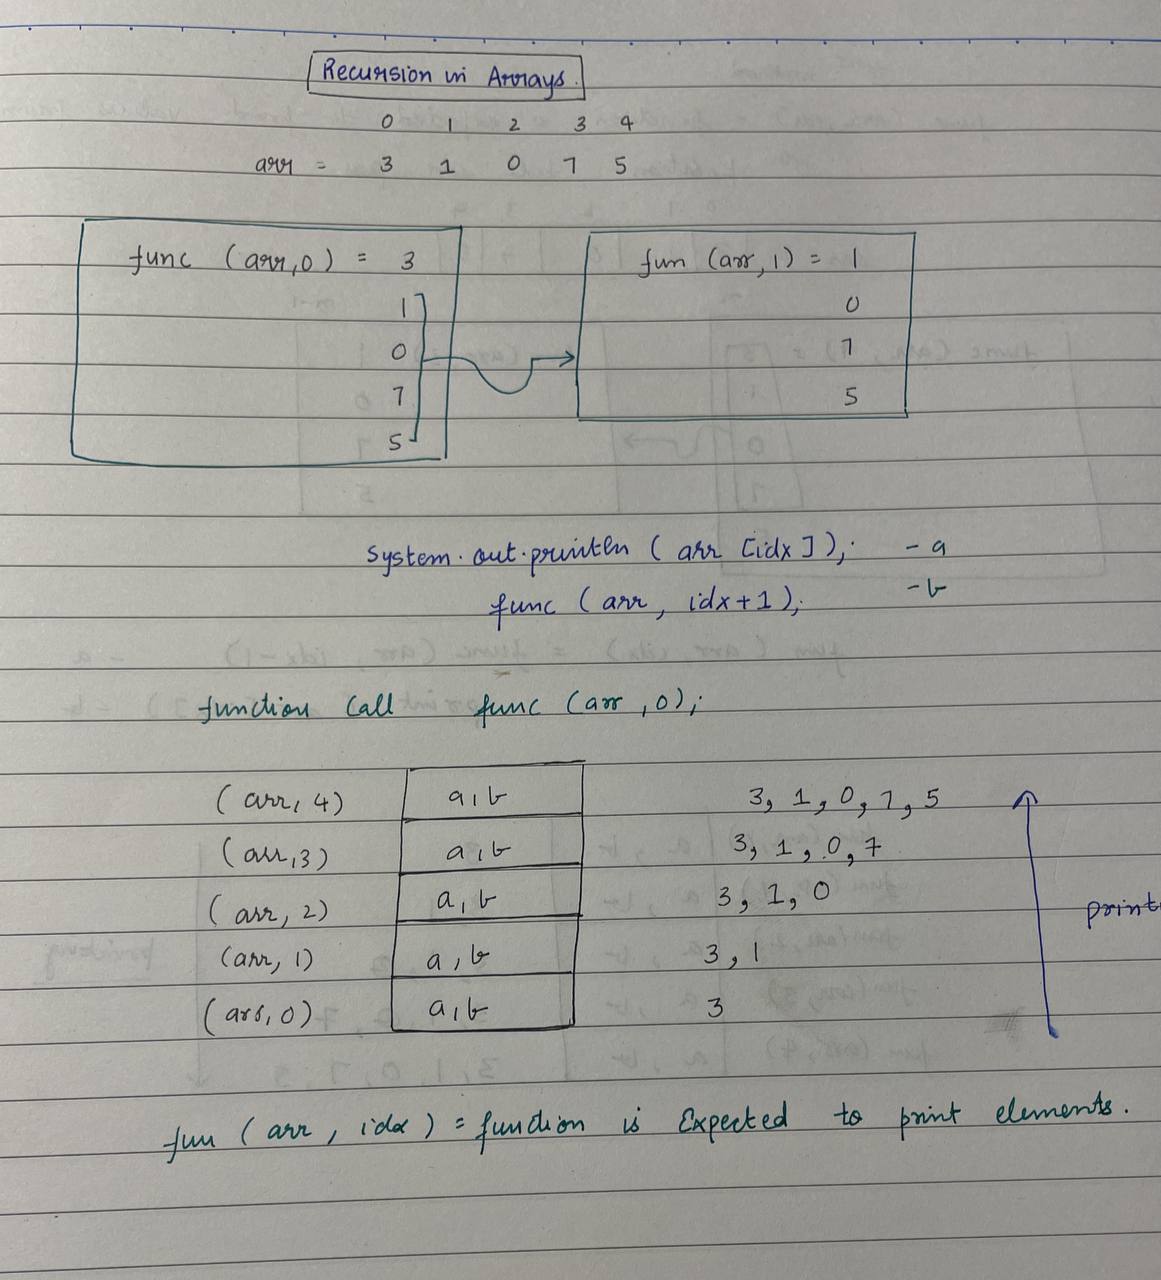 Recursion in Arrays.
0 1 2 3 4
arr = 3 1 0 7 5
func (arr,0) = 3
1
0
7
5
fun (arr, 1) = 1
0
7
5
System.out.println (arr [idx]); - a
func (arr, idx+1); - b
function call func (arr, 0);
(arr, 4) a, b 3, 1, 0, 7, 5
(arr, 3) a, b 3, 1, 0, 7
(arr, 2) a, b 3, 1, 0
(arr, 1) a, b 3, 1
(arr, 0) a, b 3
print
fun (arr, idx) = function is Expected to print elements.